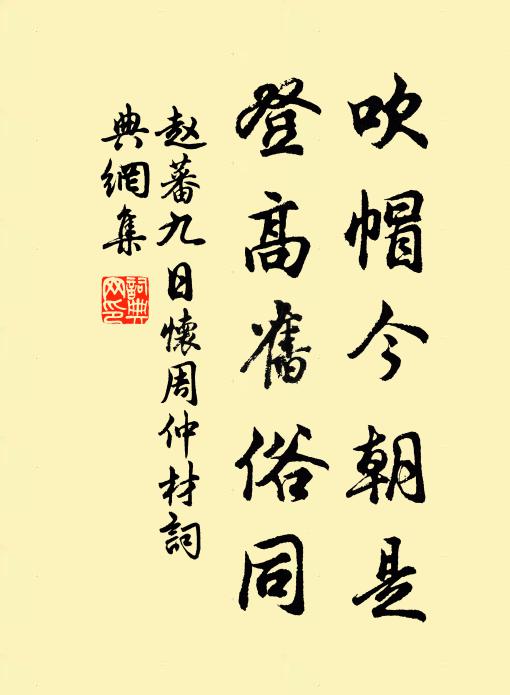 吹帽今朝是
登高舊俗同
赵蕃九日懷周仲材詞
典網集
詞典
网印